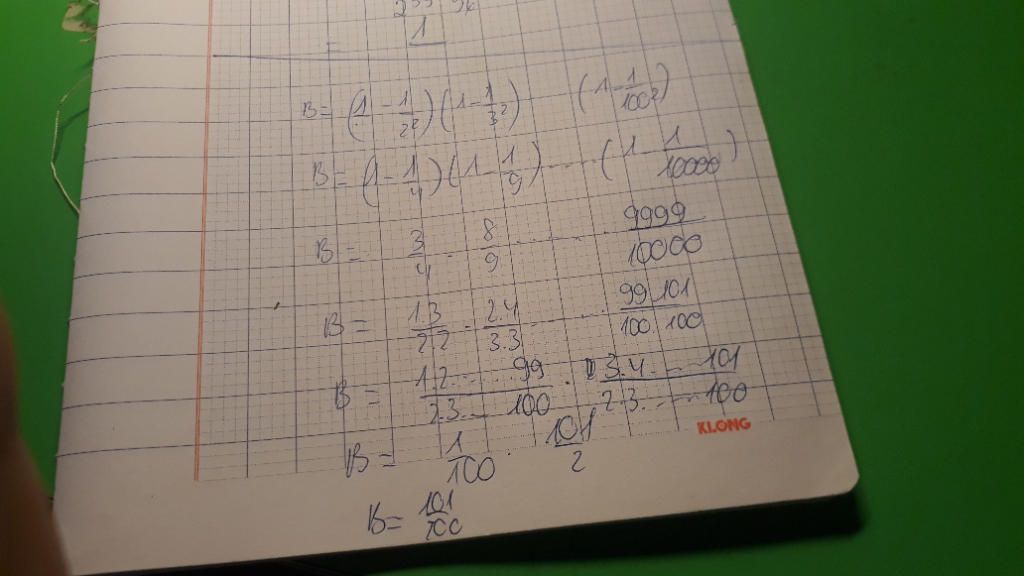 = 1
B = (1 - 1/2²)(1 - 1/3²) (1 - 1/100²)
B = (1 - 1/4)(1 - 1/9) ..... (1 - 1/10000)
B = 3/4 . 8/9 ..... 9999/10000
B = 1.3/2.2 . 2.4/3.3 ..... 99.101/100.100
B = 1.2.....99/2.3....100 . 3.4....101/2.3.....100
KLONG
B = 1/100 . 101/2
B = 101/200